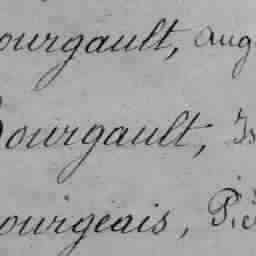 ourgault, aug
Bourgault, Is
ourgeais, P.